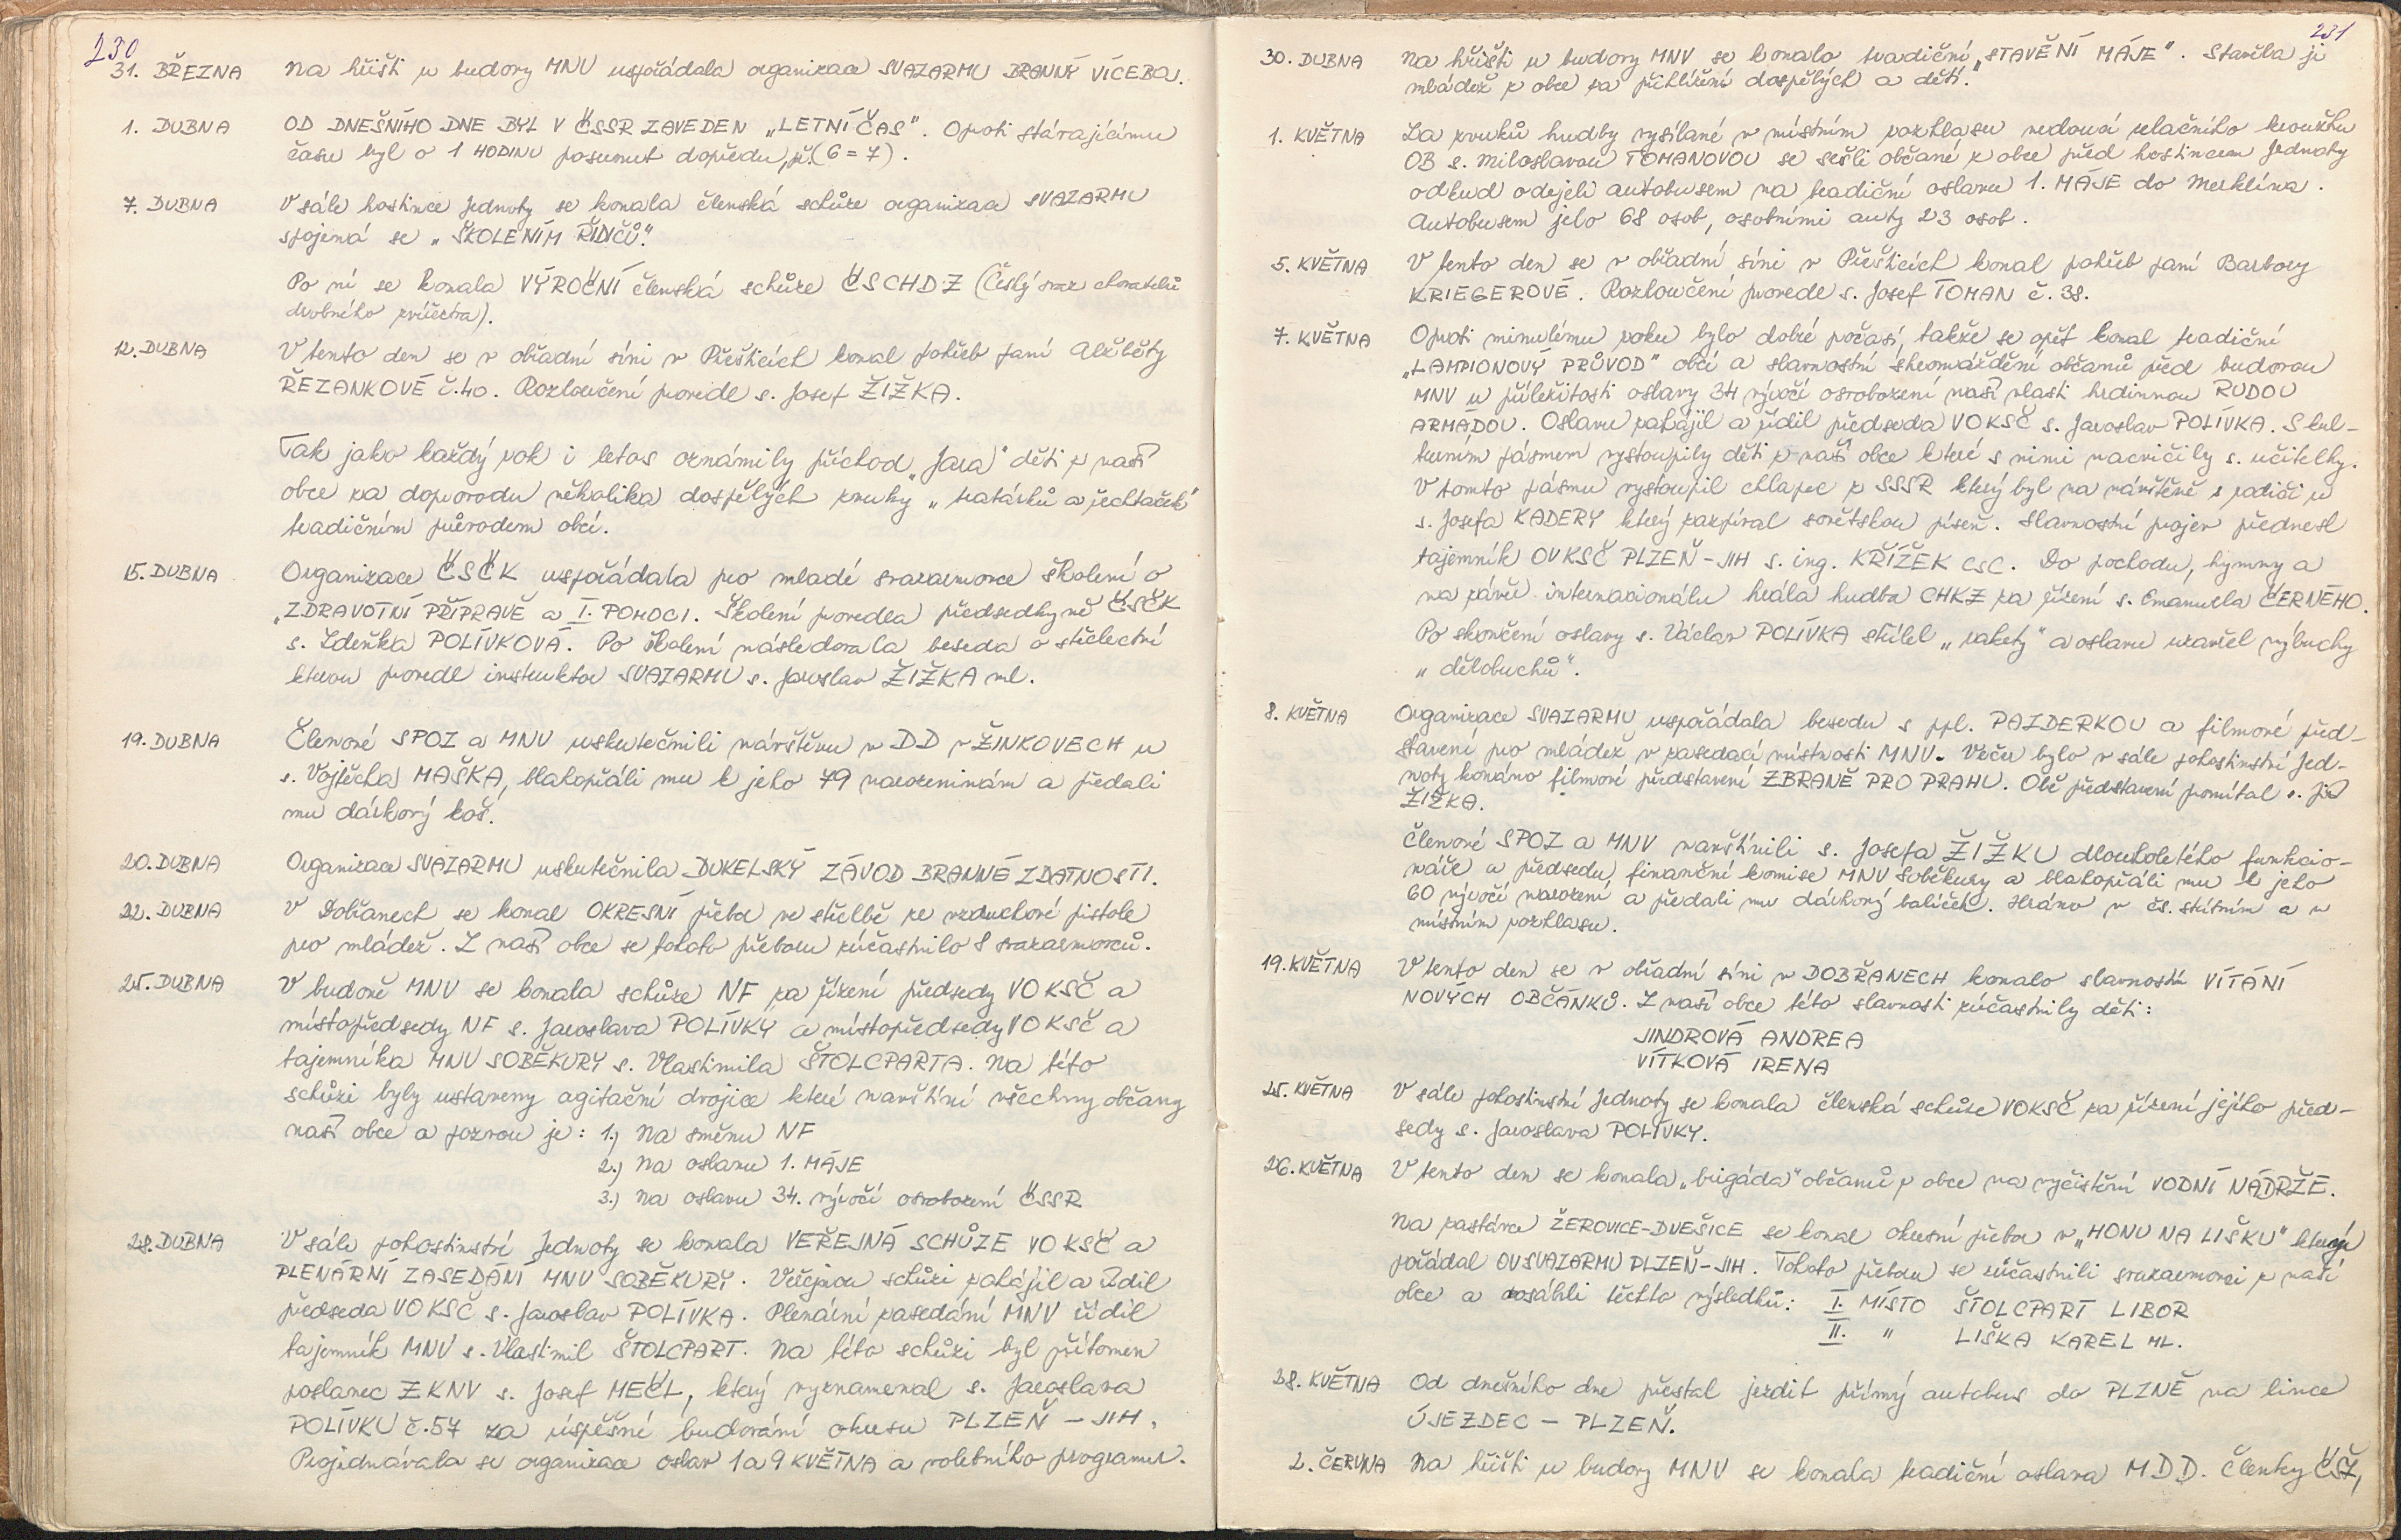 230
31. BŘEZNA Na hřišti u budovy MNV uspořádala organizace SVAZARMU BRANNÝ VÍCEBOJ.
1. DUBNA OD DNEŠNÍHO DNE BYL V ČSSR ZAVEDEN „LETNÍ ČAS". Oproti stávajícímu
času byl o 1 HODINU posunut dopředu, př. (6=7).
7. DUBNA V sále hostince Jednoty se konala členská schůze organizace SVAZARMU
spojená se „ŠKOLENÍM ŘIDIČŮ."
Po ní se konala VÝROČNÍ členská schůze ČSCHDZ (Český svaz chovatelů
drobného zvířectva).
12. DUBNA V tento den se v obřadní síni v Přešticích konal pohřeb paní Alžběty
ŘEZANKOVÉ č. 40. Rozloučení provedl s. Josef ŽIŽKA.
Tak jako každý rok i letos oznámily příchod „Jara" děti z naší
obce za doprovodu několika dospělých zvuky „tratářků a řechtaček"
tradičním průvodem obcí.
15. DUBNA Organizace ČSČK uspořádala pro mladé svazarmovce školení o
„ZDRAVOTNÍ PŘÍPRAVĚ a I. POMOCI. Školení provedla předsedkyně ČSČK
s. Zdeňka POLÍVKOVÁ. Po školení následovala beseda o střelectví
kterou provedl instruktor SVAZARMU s. Jaroslav ŽIŽKA ml.
19. DUBNA Členové SPOZ a MNV uskutečnili návštěvu v DD v ŽINKOVECH u
s. Vojtěcha MAŠKA, blahopřáli mu k jeho 79 narozeninám a předali
mu dárkový koš.
20. DUBNA Organizace SVAZARMU uskutečnila DUKELSKÝ ZÁVOD BRANNÉ ZDATNOSTI.
22. DUBNA V Dobřanech se konal OKRESNÍ přebor ve střelbě ze vzduchové pistole
pro mládež. Z naší obce se tohoto přeboru zúčastnilo 8 svazarmovců.
25. DUBNA V budově MNV se konala schůze NF za řízení předsedy VO KSČ a
místopředsedy NF s. Jaroslava POLÍVKY a místopředsedy VO KSČ a
tajemníka MNV SOBĚKURY s. Vlastimila ŠTOLCPARTA. Na této
schůzi byly ustaveny agitační dvojice které navštíví všechny občany
naší obce a pozvou je: 1.) Na směnu NF
2.) Na oslavu 1. MÁJE
3.) Na oslavu 34. výročí osvobození ČSSR
28. DUBNA V sále pohostinství Jednoty se konala VEŘEJNÁ SCHŮZE VO KSČ a
PLENÁRNÍ ZASEDÁNÍ MNV SOBĚKURY. Veřejnou schůzi zahájil a řídil
předseda VO KSČ s. Jaroslav POLÍVKA. Plenární zasedání MNV řídil
tajemník MNV s. Vlastimil ŠTOLCPART. Na této schůzi byl přítomen
poslanec ZKNV s. Josef MEČL, který vyznamenal s. Jaroslava
POLÍVKU č. 57 za úspěšné budování okresu PLZEŇ - JIH.
Projednávala se organizace oslav 1 a 9 KVĚTNA a volebního programu.
231
30. DUBNA Na hřišti u budovy MNV se konalo tradiční „STAVĚNÍ MÁJE". Stavěla ji
mládež z obce za přihlížení dospělých a dětí.
1. KVĚTNA Za zvuků hudby vysílané v místním rozhlasu vedoucí relačního kroužku
OB s. Miloslavou TOMANOVOU se sešli občané z obce před hostincem Jednoty
odkud odejeli autobusem na tradiční oslavu 1. MÁJE do Merklína.
Autobusem jelo 68 osob, osobními auty 23 osob.
5. KVĚTNA V tento den se v obřadní síni v Přešticích konal pohřeb paní Barbory
KRIEGEROVÉ. Rozloučení provedl s. Josef TOMAN č. 38.
7. KVĚTNA Oproti minulému roku bylo dobré počasí, takže se opět konal tradiční
„LAMPIONOVÝ PRŮVOD" obcí a slavnostní shromáždění občanů před budovou
MNV u příležitosti oslavy 34 výročí osvobození naší vlasti hrdinnou RUDOU
ARMÁDOU. Oslavu zahájil a řídil předseda VO KSČ s. Jaroslav POLÍVKA. S kul-
turním pásmem vystoupily děti z naší obce které s nimi nacvičily s. učitelky.
V tomto pásmu vystoupil chlapec z SSSR který byl na návštěvě s rodiči u
s. Josefa KADERY který zazpíval sovětskou píseň. Slavnostní projev přednesl
tajemník OV KSČ PLZEŇ-JIH s. ing. KŘÍŽEK CSC. Do pochodu, hymny a
na závěr internacionálu hrála hudba CHKZ za řízení s. Emanuela ČERNÉHO.
Po skončení oslavy s. Václav POLÍVKA střílel „rakety" a oslavu uzavřel výbuchy
„dělobuchů".
8. KVĚTNA Organizace SVAZARMU uspořádala besedu s ppl. PAZDERKOU a filmové před-
stavení pro mládež v zasedací místnosti MNV. Večer bylo v sále pohostinství Jed-
noty konáno filmové představení ZBRANĚ PRO PRAHU. Obě představení promítal s. Jiří
ŽIŽKA.
Členové SPOZ a MNV navštívili s. Josefa ŽIŽKU dlouholetého funkcio-
náře a předsedu finanční komise MNV Soběkury a blahopřáli mu k jeho
60 výročí narození a předali mu dárkový balíček. Hráno v čs. státním a v
místním rozhlasu.
19. KVĚTNA V tento den se v obřadní síni v DOBŘANECH konalo slavnostní VÍTÁNÍ
NOVÝCH OBČÁNKŮ. Z naší obce této slavnosti zúčastnily děti:
JINDROVÁ ANDREA
VÍTKOVÁ IRENA
25. KVĚTNA V sále pohostinství Jednoty se konala členská schůze VOKSČ za řízení jejího před-
sedy s. Jaroslava POLÍVKY.
26. KVĚTNA V tento den se konala „brigáda" občanů z obce na vyčistění VODNÍ NÁDRŽE.
Na zastávce ŽEROVICE-DVEŠICE se konal okresní přebor v „HONU NA LIŠKU" který
pořádal OV SVAZARMU PLZEŇ-JIH. Tohoto přeboru se zúčastnili svazarmovci z naší
obce a dosáhli těchto výsledků: I. MÍSTO ŠTOLCPART LIBOR
II. " LIŠKA KAREL ML.
28. KVĚTNA Od dnešního dne přestal jezdit přímý autobus do PLZNĚ na lince
ÚJEZDEC - PLZEŇ.
2. ČERVNA Na hřišti u budovy MNV se konala tradiční oslava MDD. Členky ČSŽ,